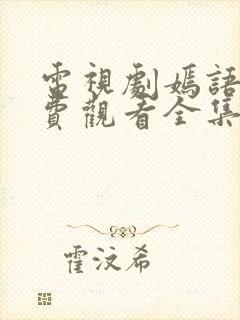 電視劇嫣語
費觀看全集
霍汶希